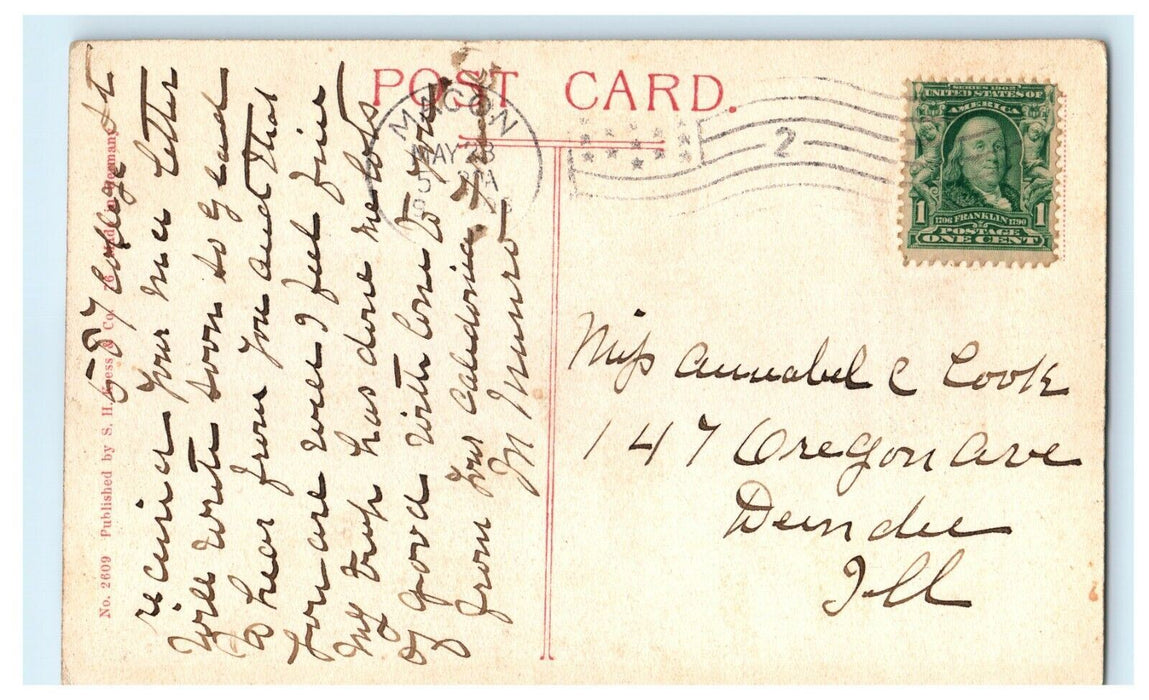 POST CARD.
MACON
MAY 23
SERIES 1902
UNITED STATES OF
AMERICA
1 1706 FRANKLIN 1790 1
POSTAGE
ONE CENT
2
Miss Annabel C Cook
147 Oregon Ave
Dundee
Ill
557 College St
reciever your Ma letter
will write soon so glead
to hear from you and that
you are well I feel fine
My trip has done me lots
of good with love to you
from Caledonia
M Munro
No. 2609 Published by S. H. Kress & Co. Made in Germany